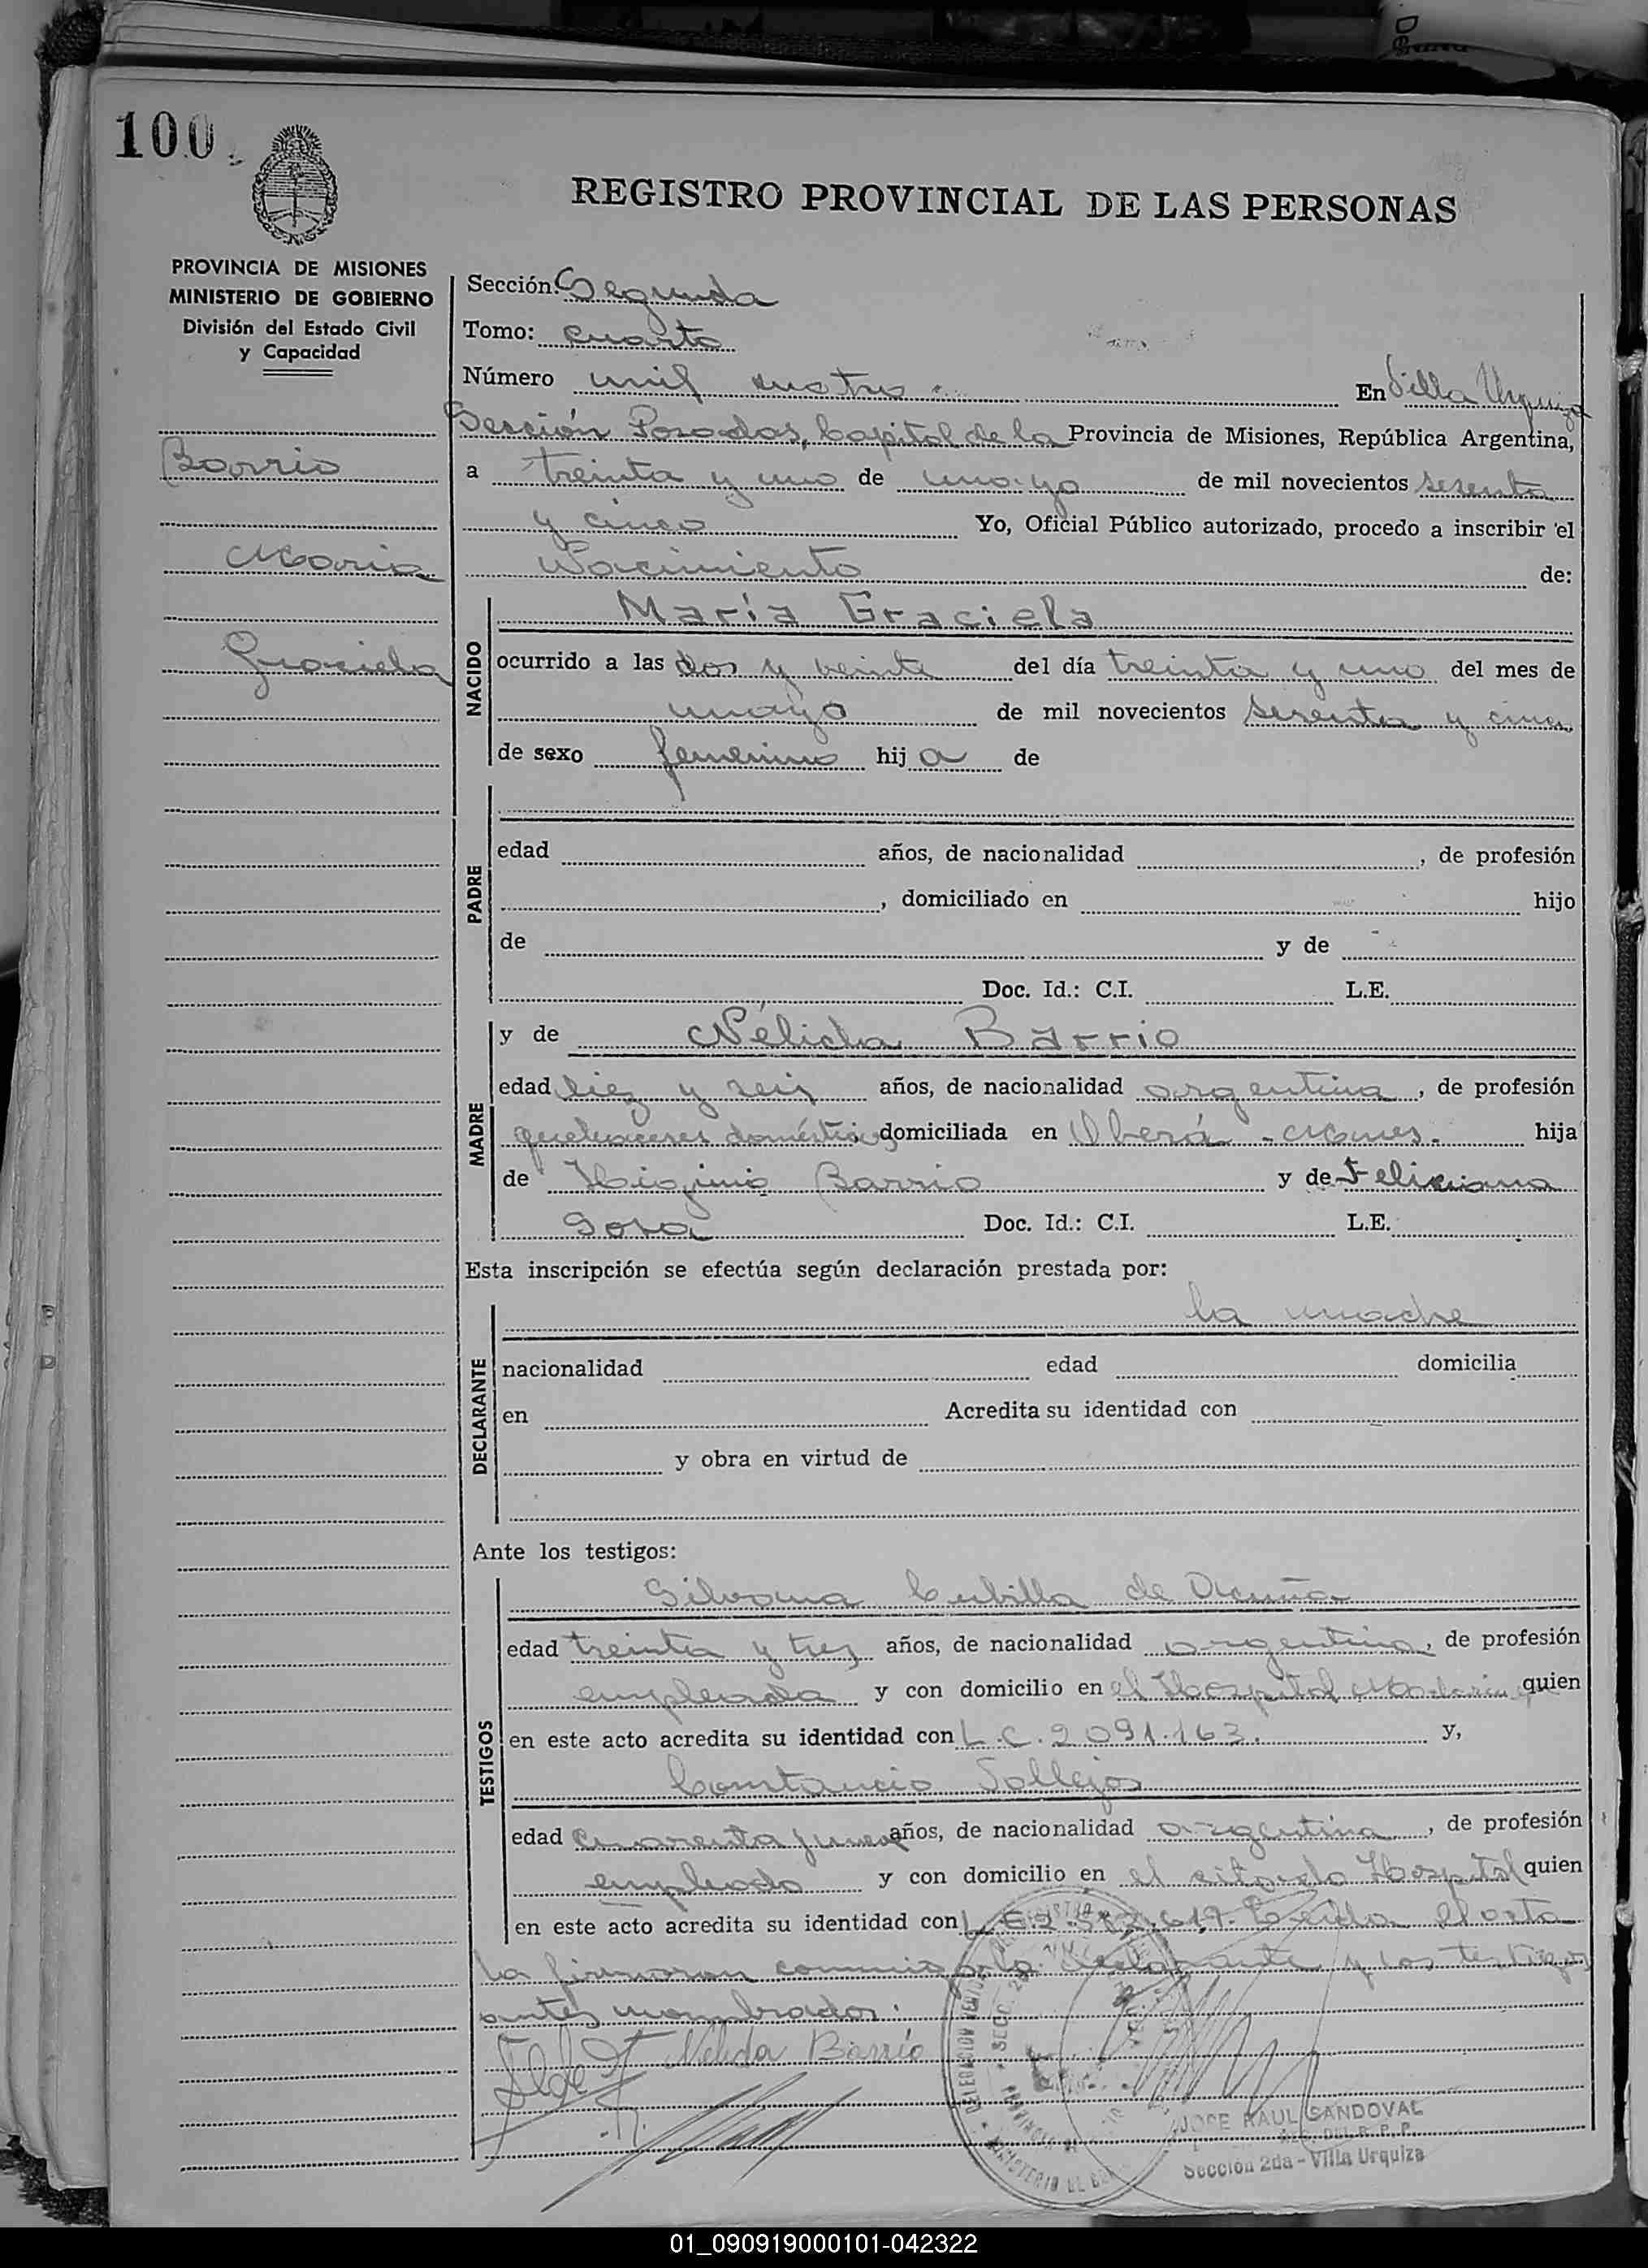 100
REGISTRO PROVINCIAL DE LAS PERSONAS
PROVINCIA DE MISIONES
MINISTERIO DE GOBIERNO
División del Estado Civil
y Capacidad
Barrio
Maria
Graciela
Sección: Segunda
Tomo: cuarto
Número mil cuatro En Villa Urquiza
Sección Posadas, Capital de la Provincia de Misiones, República Argentina,
a treinta y uno de mayo de mil novecientos sesenta
y cinco Yo, Oficial Público autorizado, procedo a inscribir el
Nacimiento de:
NACIDO
María Graciela
ocurrido a las dos y veinte del día treinta y uno del mes de
mayo de mil novecientos sesenta y cinco
de sexo femenino hija de
PADRE
edad años, de nacionalidad , de profesión
, domiciliado en hijo
de y de
Doc. Id.: C.I. L.E.
MADRE
y de Nélida Barrio
edad diez y seis años, de nacionalidad argentina, de profesión
quehaceres domésticos domiciliada en Oberá - Mnes. hija
de Higinio Barrio y de Feliciana
Sosa Doc. Id.: C.I. L.E.
Esta inscripción se efectúa según declaración prestada por:
DECLARANTE
la madre
nacionalidad edad domicilia
en Acredita su identidad con
y obra en virtud de
Ante los testigos:
TESTIGOS
Silvana Cubilla de Acuña
edad treinta y tres años, de nacionalidad argentina, de profesión
empleada y con domicilio en el Hospital Madariaga quien
en este acto acredita su identidad con L.C. 2091.163. y,
Constancio Vallejos
edad cuarenta y nueve años, de nacionalidad argentina, de profesión
empleado y con domicilio en el citado Hospital quien
en este acto acredita su identidad con Leida el acta
la firmaron conmigo la declarante y los testigos
antes nombrados.
Nelida Barrio
JOSE RAUL SANDOVAL
DEL R. P. P.
Sección 2da - Villa Urquiza
01_090919000101-042322